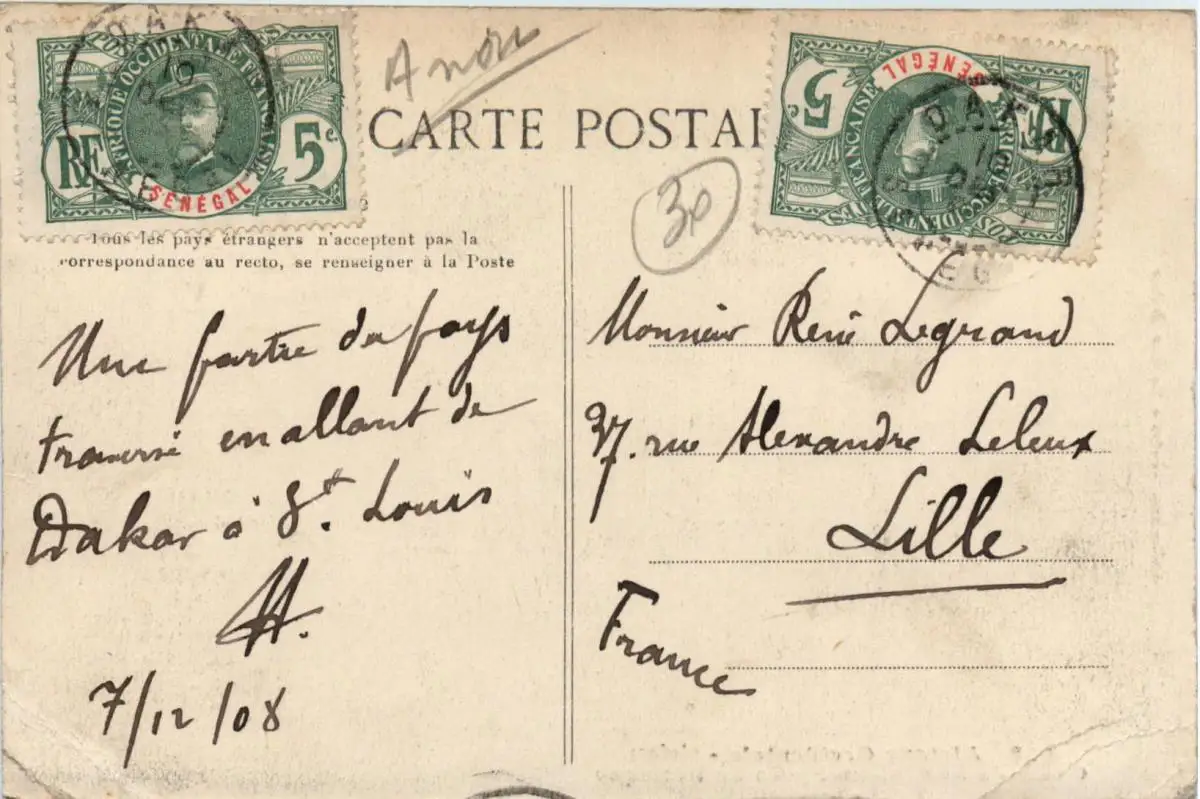 Anon
CARTE POSTAL
POSTES
AFRIQUE OCCIDENTALE FRANÇAISE
RF
5c
SÉNÉGAL
DAKAR
10
DEC
Tous les pays étrangers n'acceptent pas la
correspondance au recto, se renseigner à la Poste
Une partie du pays
traversé en allant de
Dakar à St. Louis
H.
7/12/08
30
SÉNÉGAL
5c
RF
POSTES
AFRIQUE OCCIDENTALE FRANÇAISE
DAKAR
10
DEC
Monsieur René Legrand
37. rue Alexandre Leleux
Lille
France